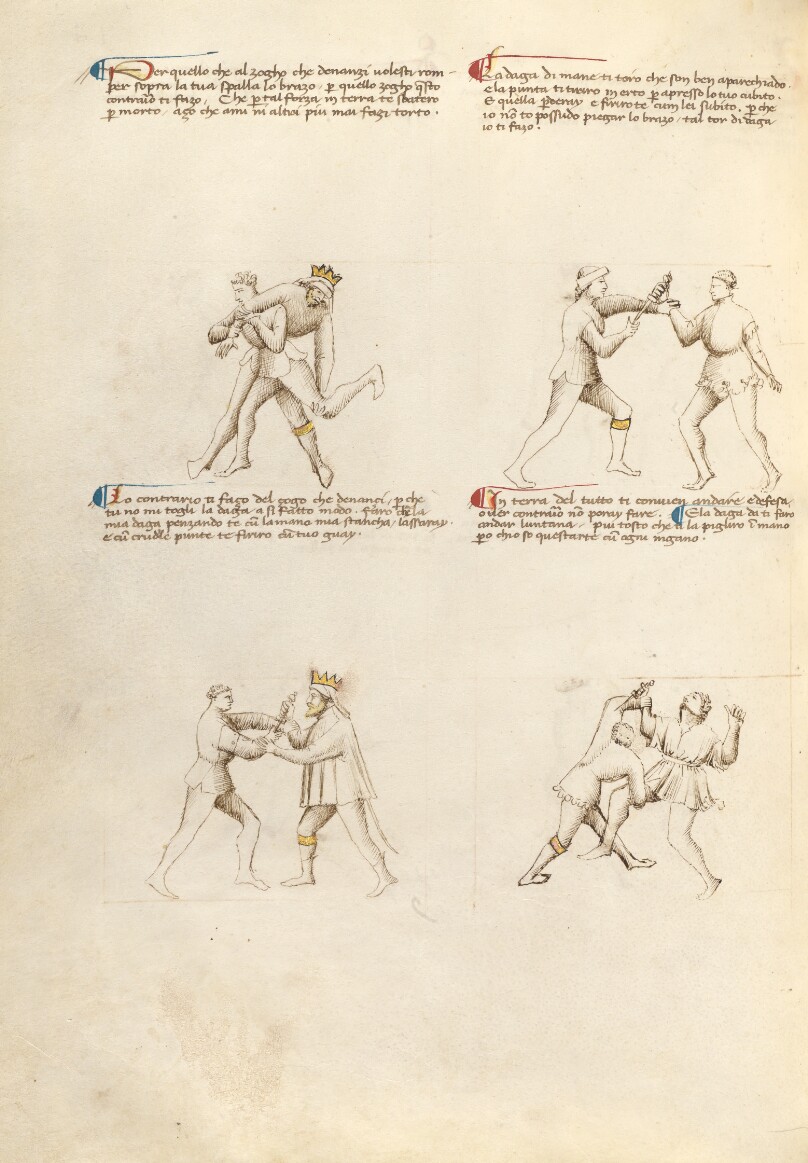 Per quello che al zogho che denanzi volesti rom-
per sopra la tua spalla lo brazo, p quello zogho q̃sto
contrario ti fazo, Che p tal forza in terra te sbatero
p morto, aço che ami ni altroi piu mai fazi torto.
La daga di mane ti toro che son ben aparechiado.
e la punta ti tirero in erto p apresso lo tuo cubito.
E quella pderay e firirote cum lei subito. p che
io nõ to possudo piegar lo brazo tal tor di daga
io ti fazo.
Lo contrario ti faço del çogo che denanci, p che
tu no mi togli la daga a si fatto modo. faro che la
mia daga penzando te cũ la mano mia stancha, lassaray.
e cũ crudele punte te firiro cũ tuo guay.
In terra del tutto ti convien andare e defesa,
over contrario nõ poray fare. E la daga da ti faro
andar luntana, piui tosto che la pigliro ĩ mano
po chio so questarte cũ ogni ingano.